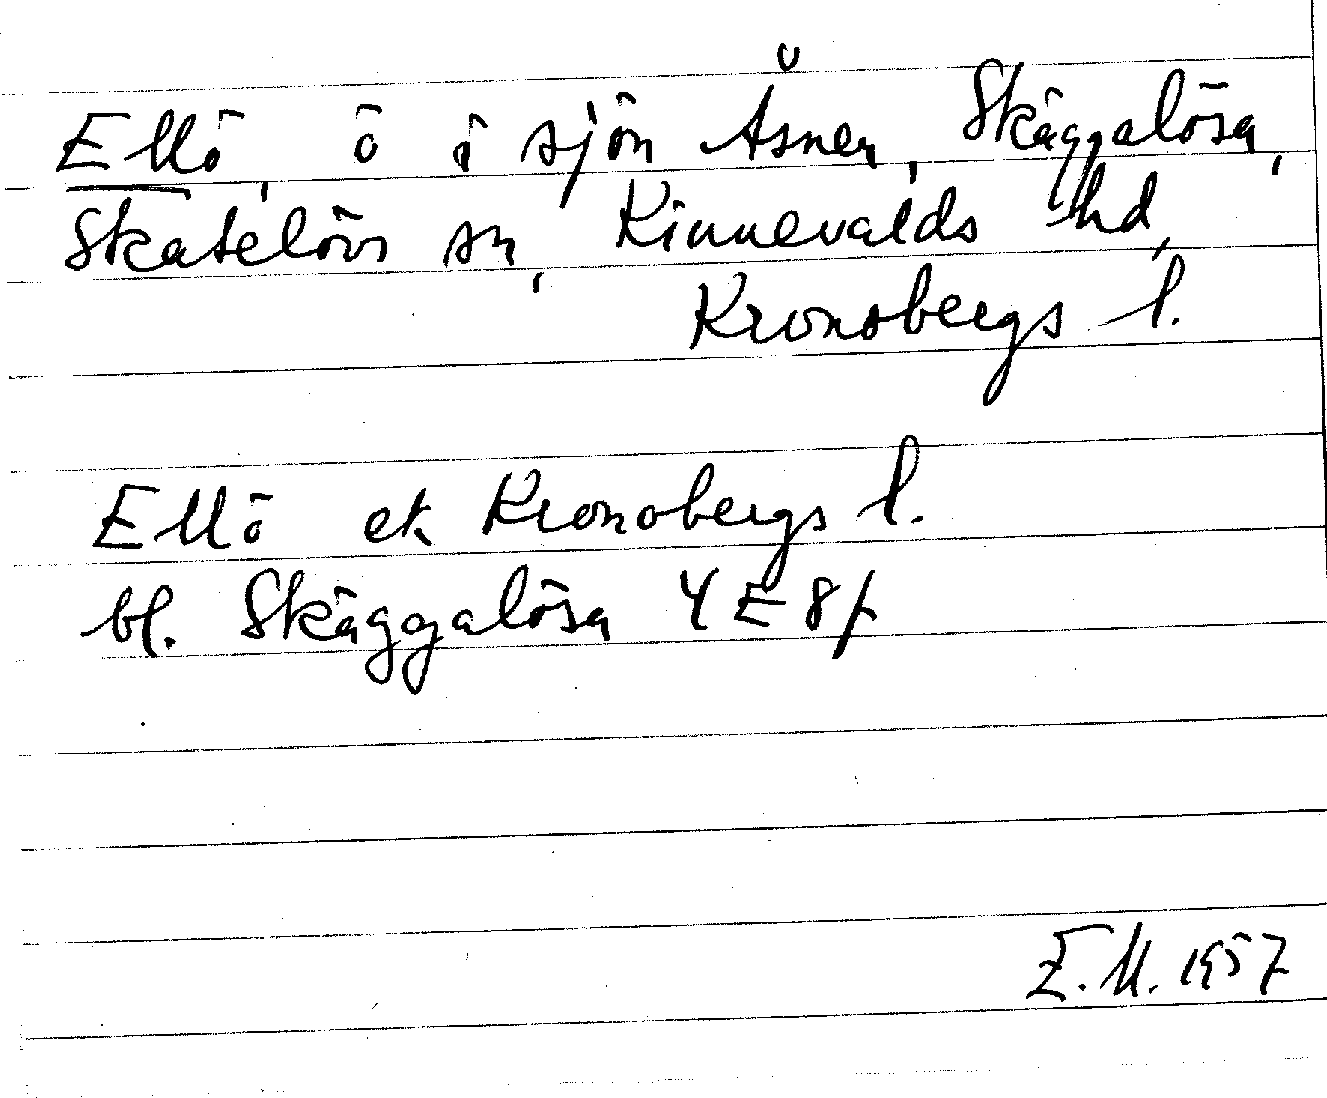 Ellö, ö i sjön Åsnen, Skäggalösa,
Skatelövs sn, Kinnevalds hd,
Kronobergs l.
Ellö ek Kronobergs l.
bl. Skäggalösa 4E 8f
E.M. 1957